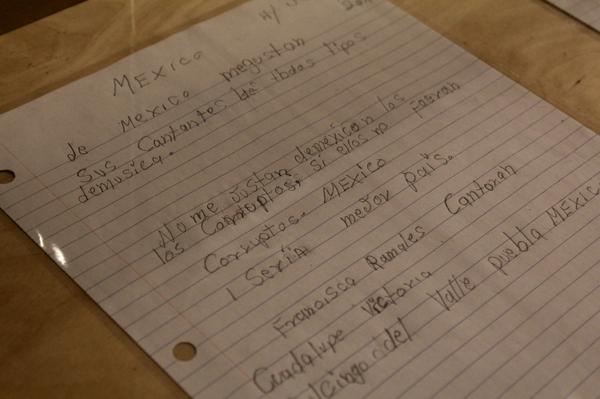 MEXICO
de Mexico megustan
sus Cantantes de todos tipos
demusica.
No me Gustan demexico a los
los Corruptos, si ellos no fueran
Corruptos. MEXICO
Sería mejor país.
Francisca Ramales Cantoran
Guadalupe Victoria
del Valle puebla MEXIC